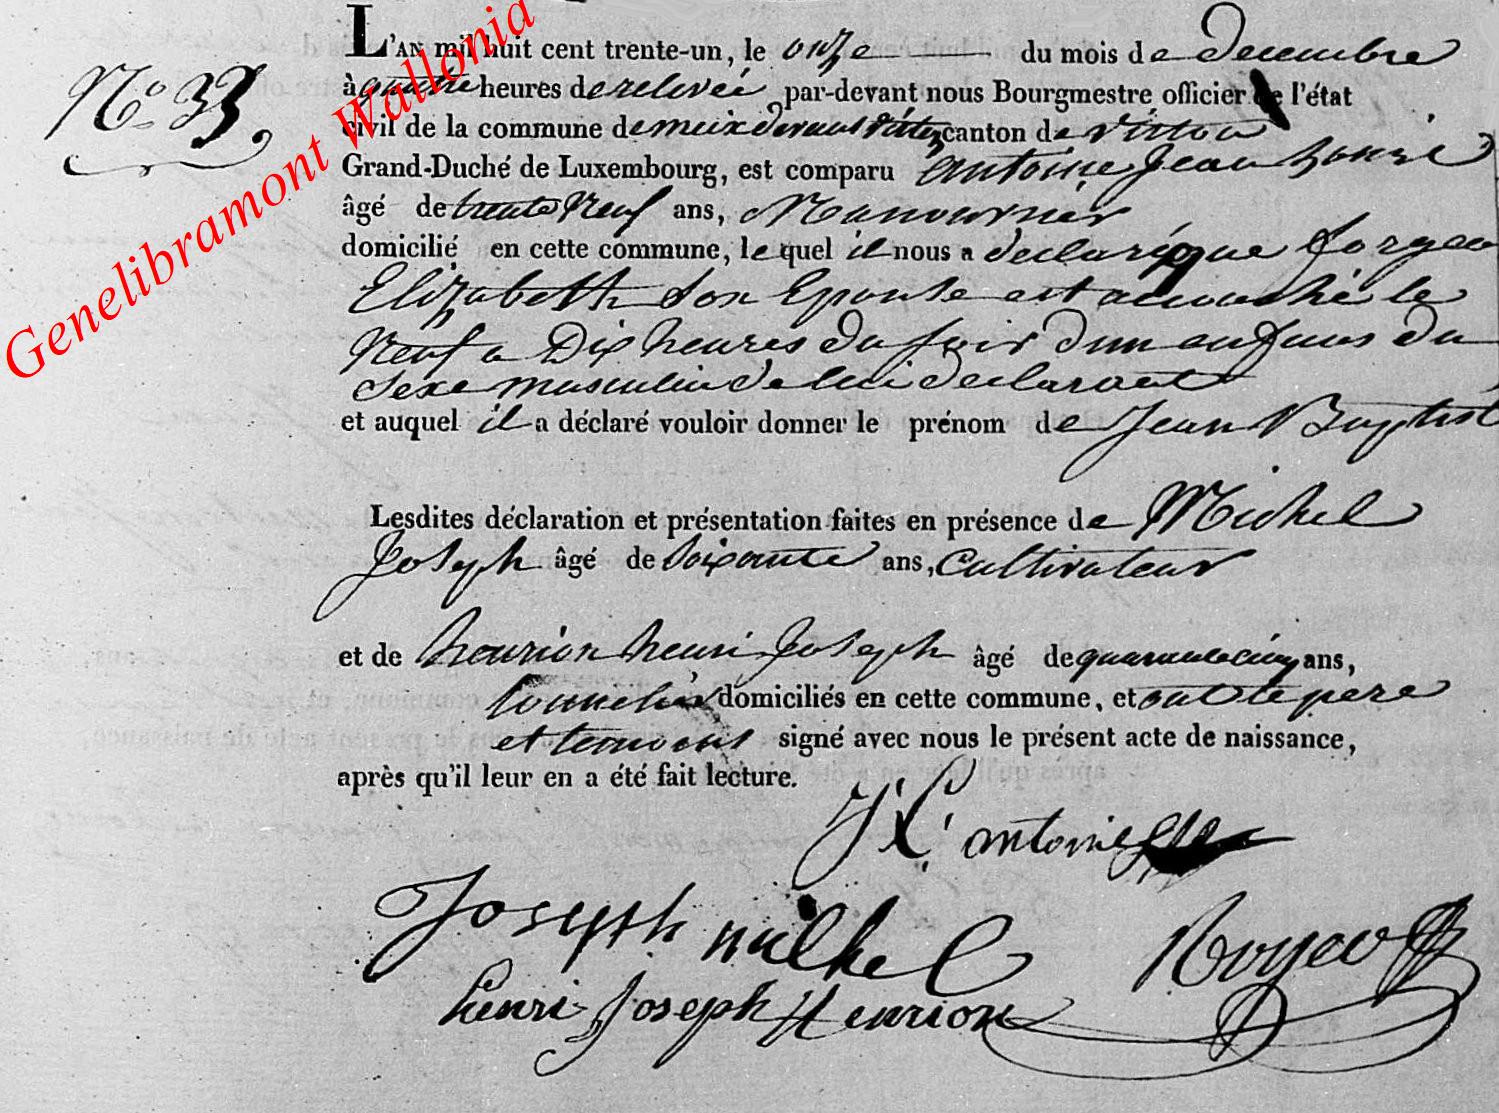 L'AN mil huit cent trente-un, le onze du mois de decembre
N.º 33.
à quatre heures de relevée par-devant nous Bourgmestre officier de l'état
civil de la commune de meix devant virton canton de virton
Grand-Duché de Luxembourg, est comparu antoine Jean
âgé de trente Neuf ans, Manouvrier
domicilié en cette commune, lequel il nous a declaré que
Elizabeth Son Epouse est accouché le
Neuf a Dix heures du soir d'un enfans du
Sexe masculin de lui declarant
et auquel il a déclaré vouloir donner le prénom de Jean Baptist
Lesdites déclaration et présentation faites en présence de Michel
Joseph âgé de soixante ans, Cultivateur
et de henrion henri Joseph âgé de quarante cinq ans,
domiciliés en cette commune, et ont le pere
et temoins signé avec nous le présent acte de naissance,
après qu'il leur en a été fait lecture.
antoine
Joseph milhel
henri Joseph Henrion
Genelibramont Wallonia